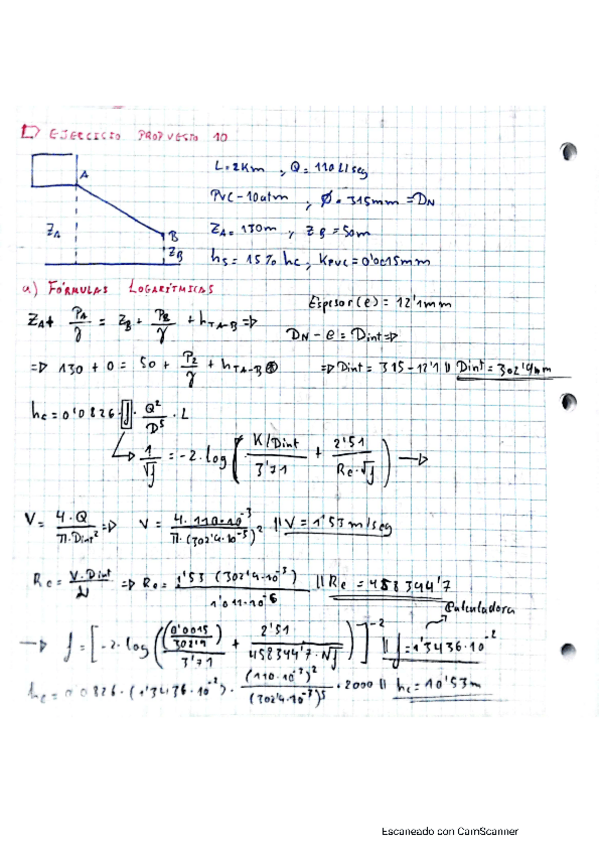 EJERCICIO PROPUESTO 10
A
Z_A
B
Z_B
L=2Km , Q=110 L/seg
PVC-10atm , Ø=315mm=D_N
Z_A=130m , Z_B=50m
h_s=15% h_c , K_PVC=0'0015mm
a) FÓRMULAS LOGARÍTMICAS
Espesor(e)=12'1mm
Z_A + P_A/γ = Z_B + P_B/γ + h_TA-B ⇒
D_N - e = Dint ⇒
⇒ 130 + 0 = 50 + P_2/γ + h_TA-B
⇒ Dint = 315-12'1 // Dint = 302'9mm
h_c = 0'0826 · f · Q²/D⁵ · L
→ 1/√f = -2·log( (K/Dint)/3'71 + 2'51/(Re·√f) ) →
V = 4·Q/(π·Dint²) ⇒ V = 4·110·10⁻³/(π·(302'9·10⁻³)²) // V=1'53m/seg
Re = V·Dint/ν ⇒ Re = 1'53·(302'9·10⁻³)/(1'011·10⁻⁶) // Re=458344'7
Calculadora
→ f = [-2·log( (0'0015/302'9)/3'71 + 2'51/(458344'7·√f) )]⁻² // f=1'3436·10⁻²
h_c = 0'0826·(1'3436·10⁻²)·(110·10⁻³)²/(302'9·10⁻³)⁵·2000 // h_c=10'53m
Escaneado con CamScanner